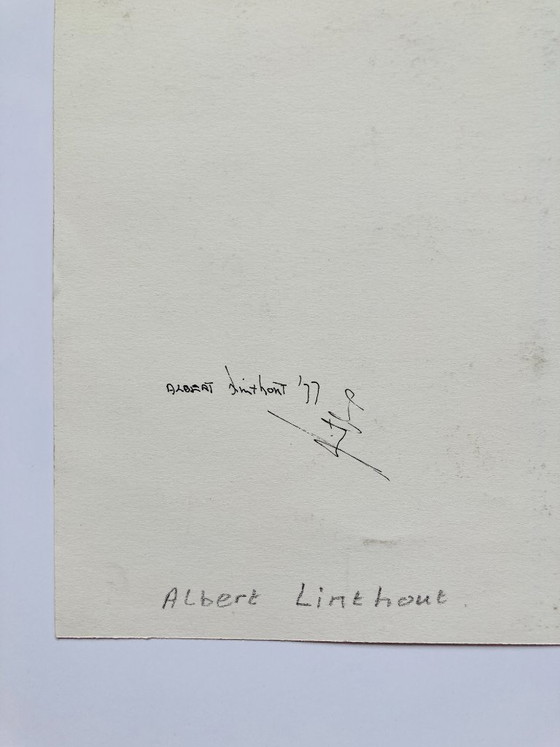 ALBERT Linthout '77
Albert Linthout